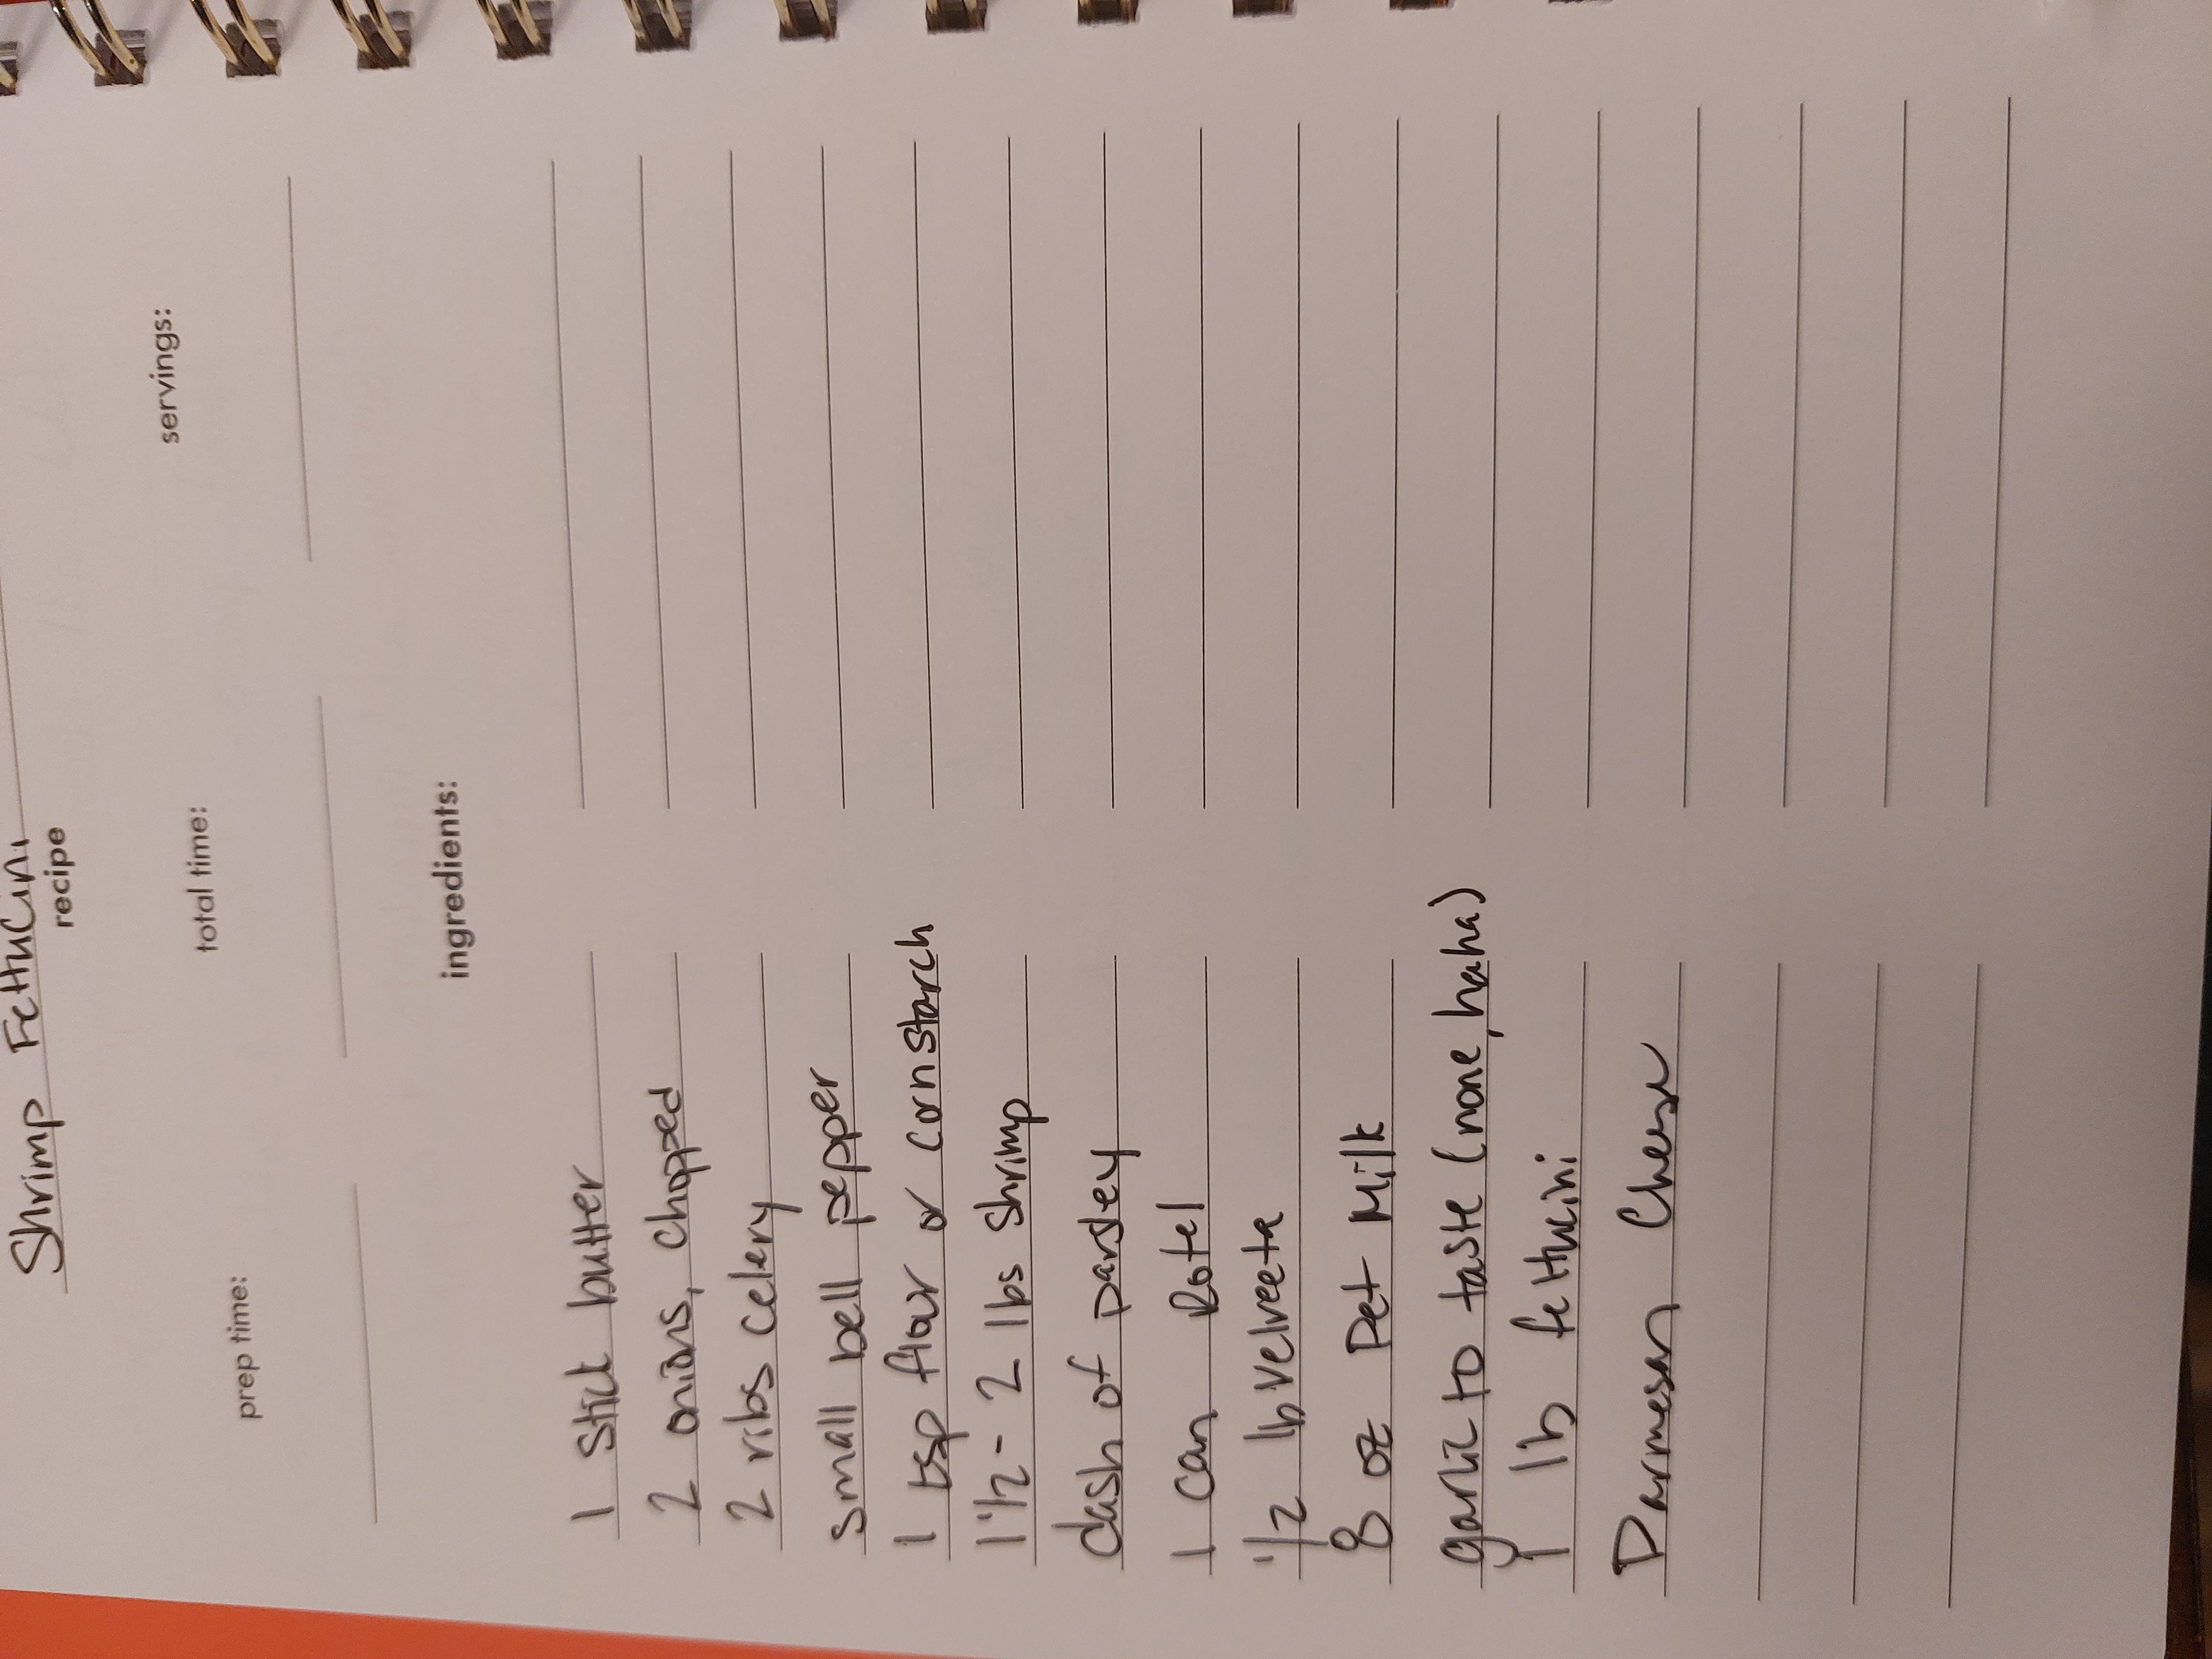 Shrimp Fettucini
recipe
prep time: total time: servings:
ingredients:
1 stick butter
2 onions, chopped
2 ribs celery
small bell pepper
1 tsp flour or cornstarch
1 1/2 - 2 lbs shrimp
dash of parsley
1 can Rotel
1/2 lb Velveeta
8 oz Pet Milk
garlic to taste (none, haha)
1 lb fettucini
Parmesan Cheese